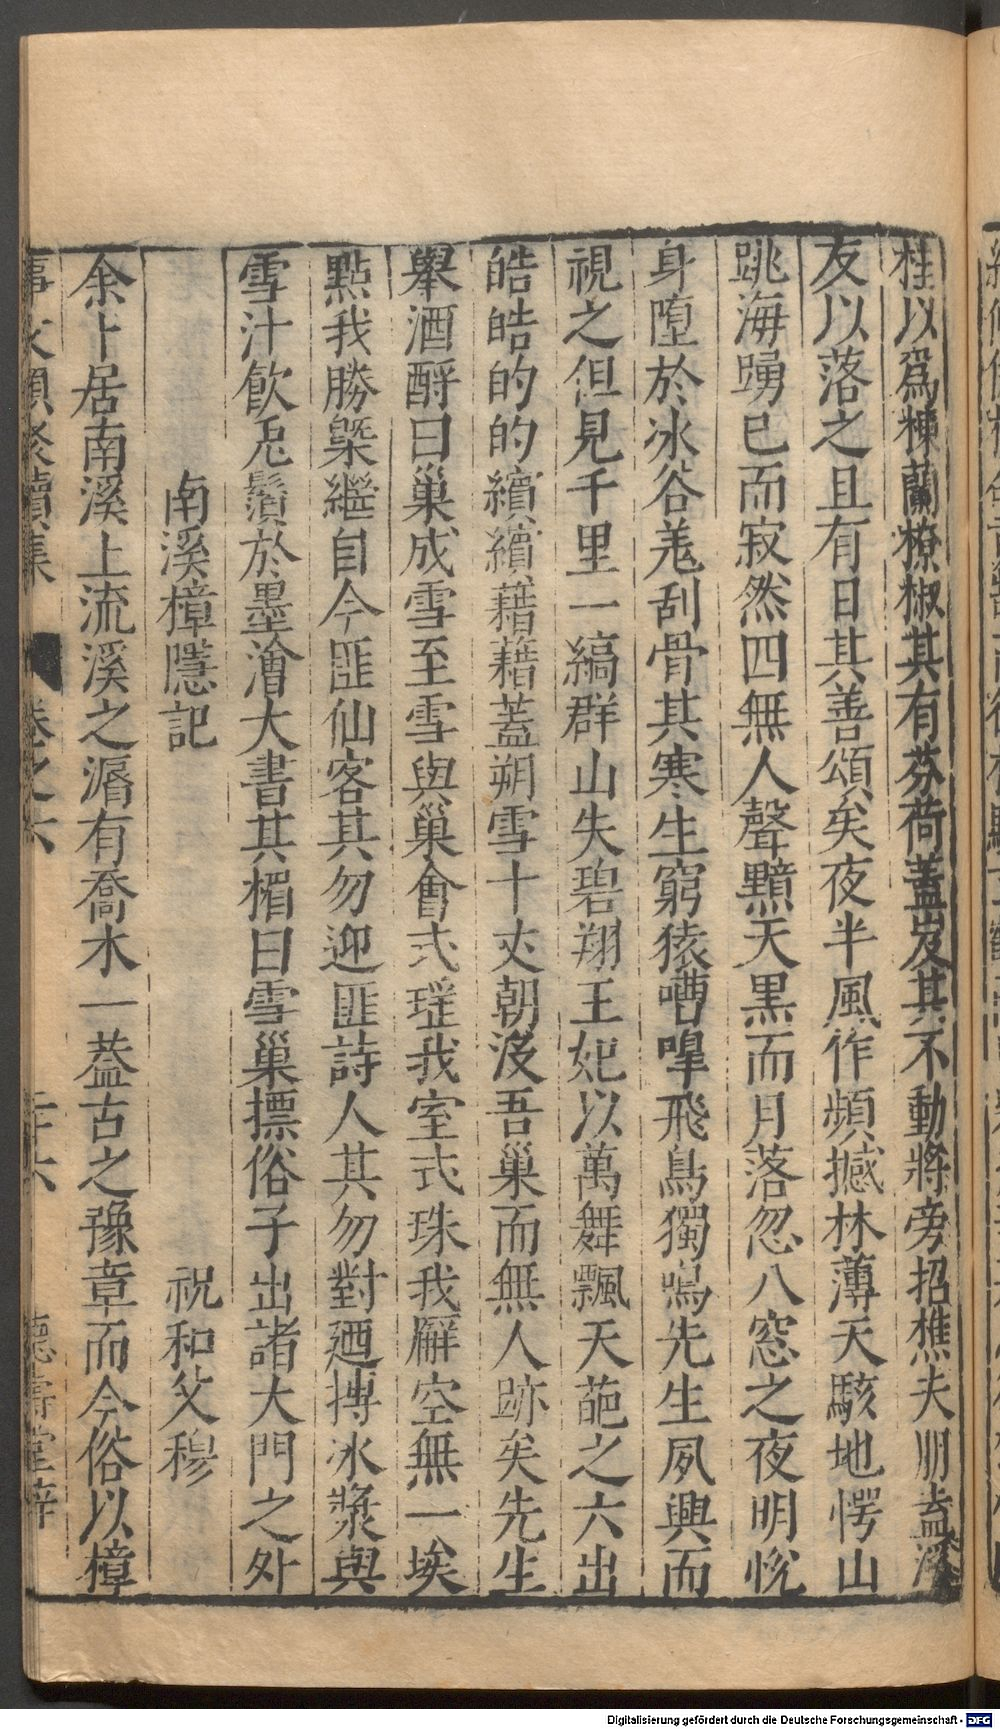 桂以爲棟蘭橑椒其有芬荷蓋岌其不動將旁招樵夫朋盍溪
友以落之且有日其善頌矣夜半風作頻撼林薄天駭地愕山
跳海踴已而寂然四無人聲黯天黑而月落忽八窓之夜明恍
身墮於冰谷羗刮骨其寒生窮猿嘈嘷飛鳥獨鳴先生夙興而
視之但見千里一縞群山失碧翔王妃以萬舞飄天葩之六出
皓皓的的繽繽藉藉蓋朔雪十丈朝沒吾巢而無人跡矣先生
舉酒酹曰巢成雪至雪與巢會弍瑳我室弍珠我廨空無一埃
點我勝槩繼自今匪仙客其勿迎匪詩人其勿對廼摶冰漿與
雪汁飲兎鬚於墨澮大書其楣曰雪巢摽俗子出諸大門之外
南溪樟隱記 祝和父穆
余卜居南溪上流溪之漘有喬木一葢古之豫章而今俗以樟
事文類聚續集 卷之六 二十六 德壽堂梓
Digitalisierung gefördert durch die Deutsche Forschungsgemeinschaft - DFG